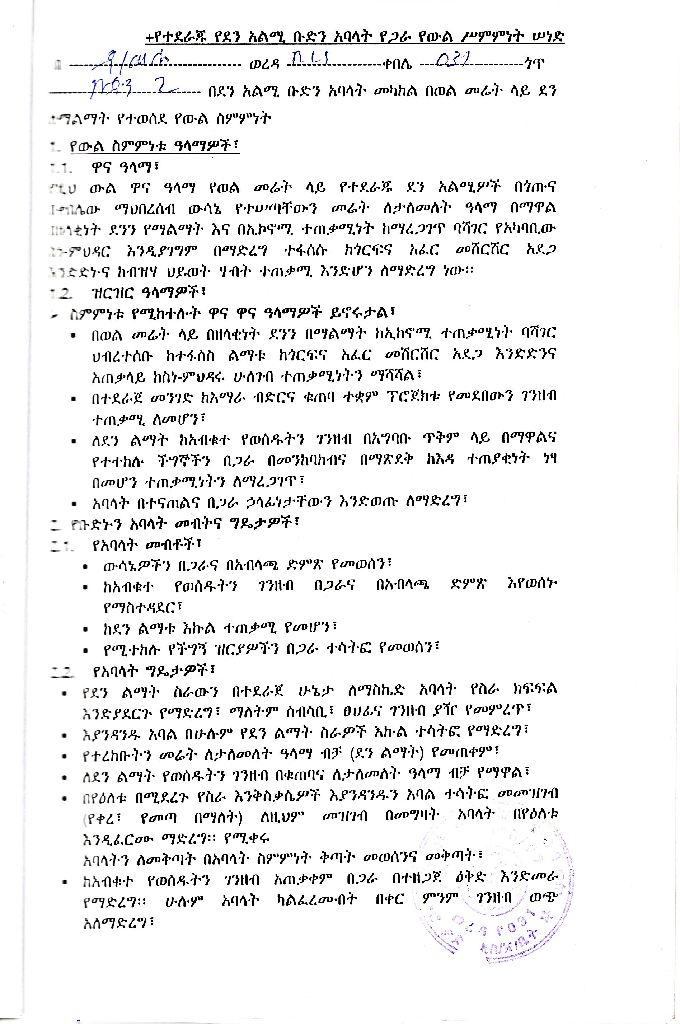 +የተደራጁ የደን አልሚ ቡድን አባላት የጋራ የውል ሥምምነት ሠነድ
ወረዳ ቀበሌ 031 ጎጥ
2 በደን አልሚ ቡድን አባላት መካከል በወል መሬት ላይ ደን
ማልማት የተወሰደ የውል ስምምነት
1. የውል ስምምነቱ ዓላማዎች፣
1.1. ዋና ዓላማ፣
የዚህ ውል ዋና ዓላማ የወል መሬት ላይ የተደራጁ ደን አልሚዎች በጎጡና
በቀበሌው ማህበረሰብ ውሳኔ የተሠጣቸውን መሬት ለታለመለት ዓላማ በማዋል
በዘላቂነት ደንን የማልማት እና በኢኮኖሚ ተጠቃሚነት ከማረጋገጥ ባሻገር የአካባቢው
ስነ-ምህዳር እንዲያገግም በማድረግ ተፋሰሱ ከጎርፍና አፈር መሸርሸር አደጋ
እንድድኑና ከብዝሃ ህይወት ሃብት ተጠቃሚ እንድሆን ለማድረግ ነው፡፡
1.2. ዝርዝር ዓላማዎች፣
ስምምነቱ የሚከተሉት ዋና ዋና ዓላማዎች ይኖሩታል፣
▪ በወል መሬት ላይ በዘላቂነት ደንን በማልማት ከኢኮኖሚ ተጠቃሚነት ባሻገር
ህብረተሰቡ ከተፋሰስ ልማቱ ከጎርፍና አፈር መሸርሸር አደጋ እንድድንና
አጠቃላይ ከስነ-ምህዳሩ ሁለገብ ተጠቃሚነትን ማሻሻል፣
▪ በተደራጀ መንገድ ከአማራ ብድርና ቁጠባ ተቋም ፕሮጀክቱ የመደበውን ገንዘብ
ተጠቃሚ ለመሆን፣
▪ ለደን ልማት ከአብቁተ የወሰዱትን ገንዘብ በአግባቡ ጥቅም ላይ በማዋልና
የተተከሉ ችግኞችን በጋራ በመንከባከብና በማጽደቅ ከእዳ ተጠያቂነት ነፃ
በመሆን ተጠቃሚነትን ለማረጋገጥ፣
▪ አባላት በተናጠልና በጋራ ኃላፊነታቸውን እንድወጡ ለማድረግ፣
2. የቡድኑን አባላት መብትና ግዴታዎች፣
2.1. የአባላት መብቶች፣
▪ ውሳኔዎችን በጋራና በአብላጫ ድምጽ የመወሰን፣
▪ ከአብቁተ የወሰዱትን ገንዘብ በጋራና በአብላጫ ድምጽ እየወሰኑ
የማስተዳደር፣
▪ ከደን ልማቱ እኩል ተጠቃሚ የመሆን፣
▪ የሚተከሉ የችግኝ ዝርያዎችን በጋራ ተሳትፎ የመወሰን፣
2.2. የአባላት ግዴታዎች፣
▪ የደን ልማት ስራውን በተደራጀ ሁኔታ ለማስኬድ አባላት የስራ ክፍፍል
እንድያደርጉ የማድረግ፣ ማለትም ሰብሳቢ፣ ፀሀፊና ገንዘብ ያዥ የመምረጥ፣
▪ እያንዳንዱ አባል በሁሉም የደን ልማት ስራዎች እኩል ተሳትፎ የማድረግ፣
▪ የተረከቡትን መሬት ለታለመለት ዓላማ ብቻ (ደን ልማት) የመጠቀም፣
▪ ለደን ልማት የወሰዱትን ገንዘብ በቁጠባና ለታለመለት ዓላማ ብቻ የማዋል፣
▪ በየዕለቱ በሚደረጉ የስራ እንቅስቃሴዎች እያንዳንዱን አባል ተሳትፎ መመዝገብ
(የቀረ፣ የመጣ በማለት) ለዚህም መዝገብ በመግባት አባላት በየዕለቱ
እንዲፈርሙ ማድረግ፡፡ የሚቀሩ
አባላትን ለመቅጣት በአባላት ስምምነት ቅጣት መወሰንና መቅጣት፣
▪ ከአብቁተ የወሰዱትን ገንዘብ አጠቃቀም በጋራ በተዘጋጀ ዕቅድ እንድመራ
የማድረግ፡፡ ሁሉም አባላት ካልፈረሙበት በቀር ምንም ገንዘብ ወጭ
አለማድረግ፣